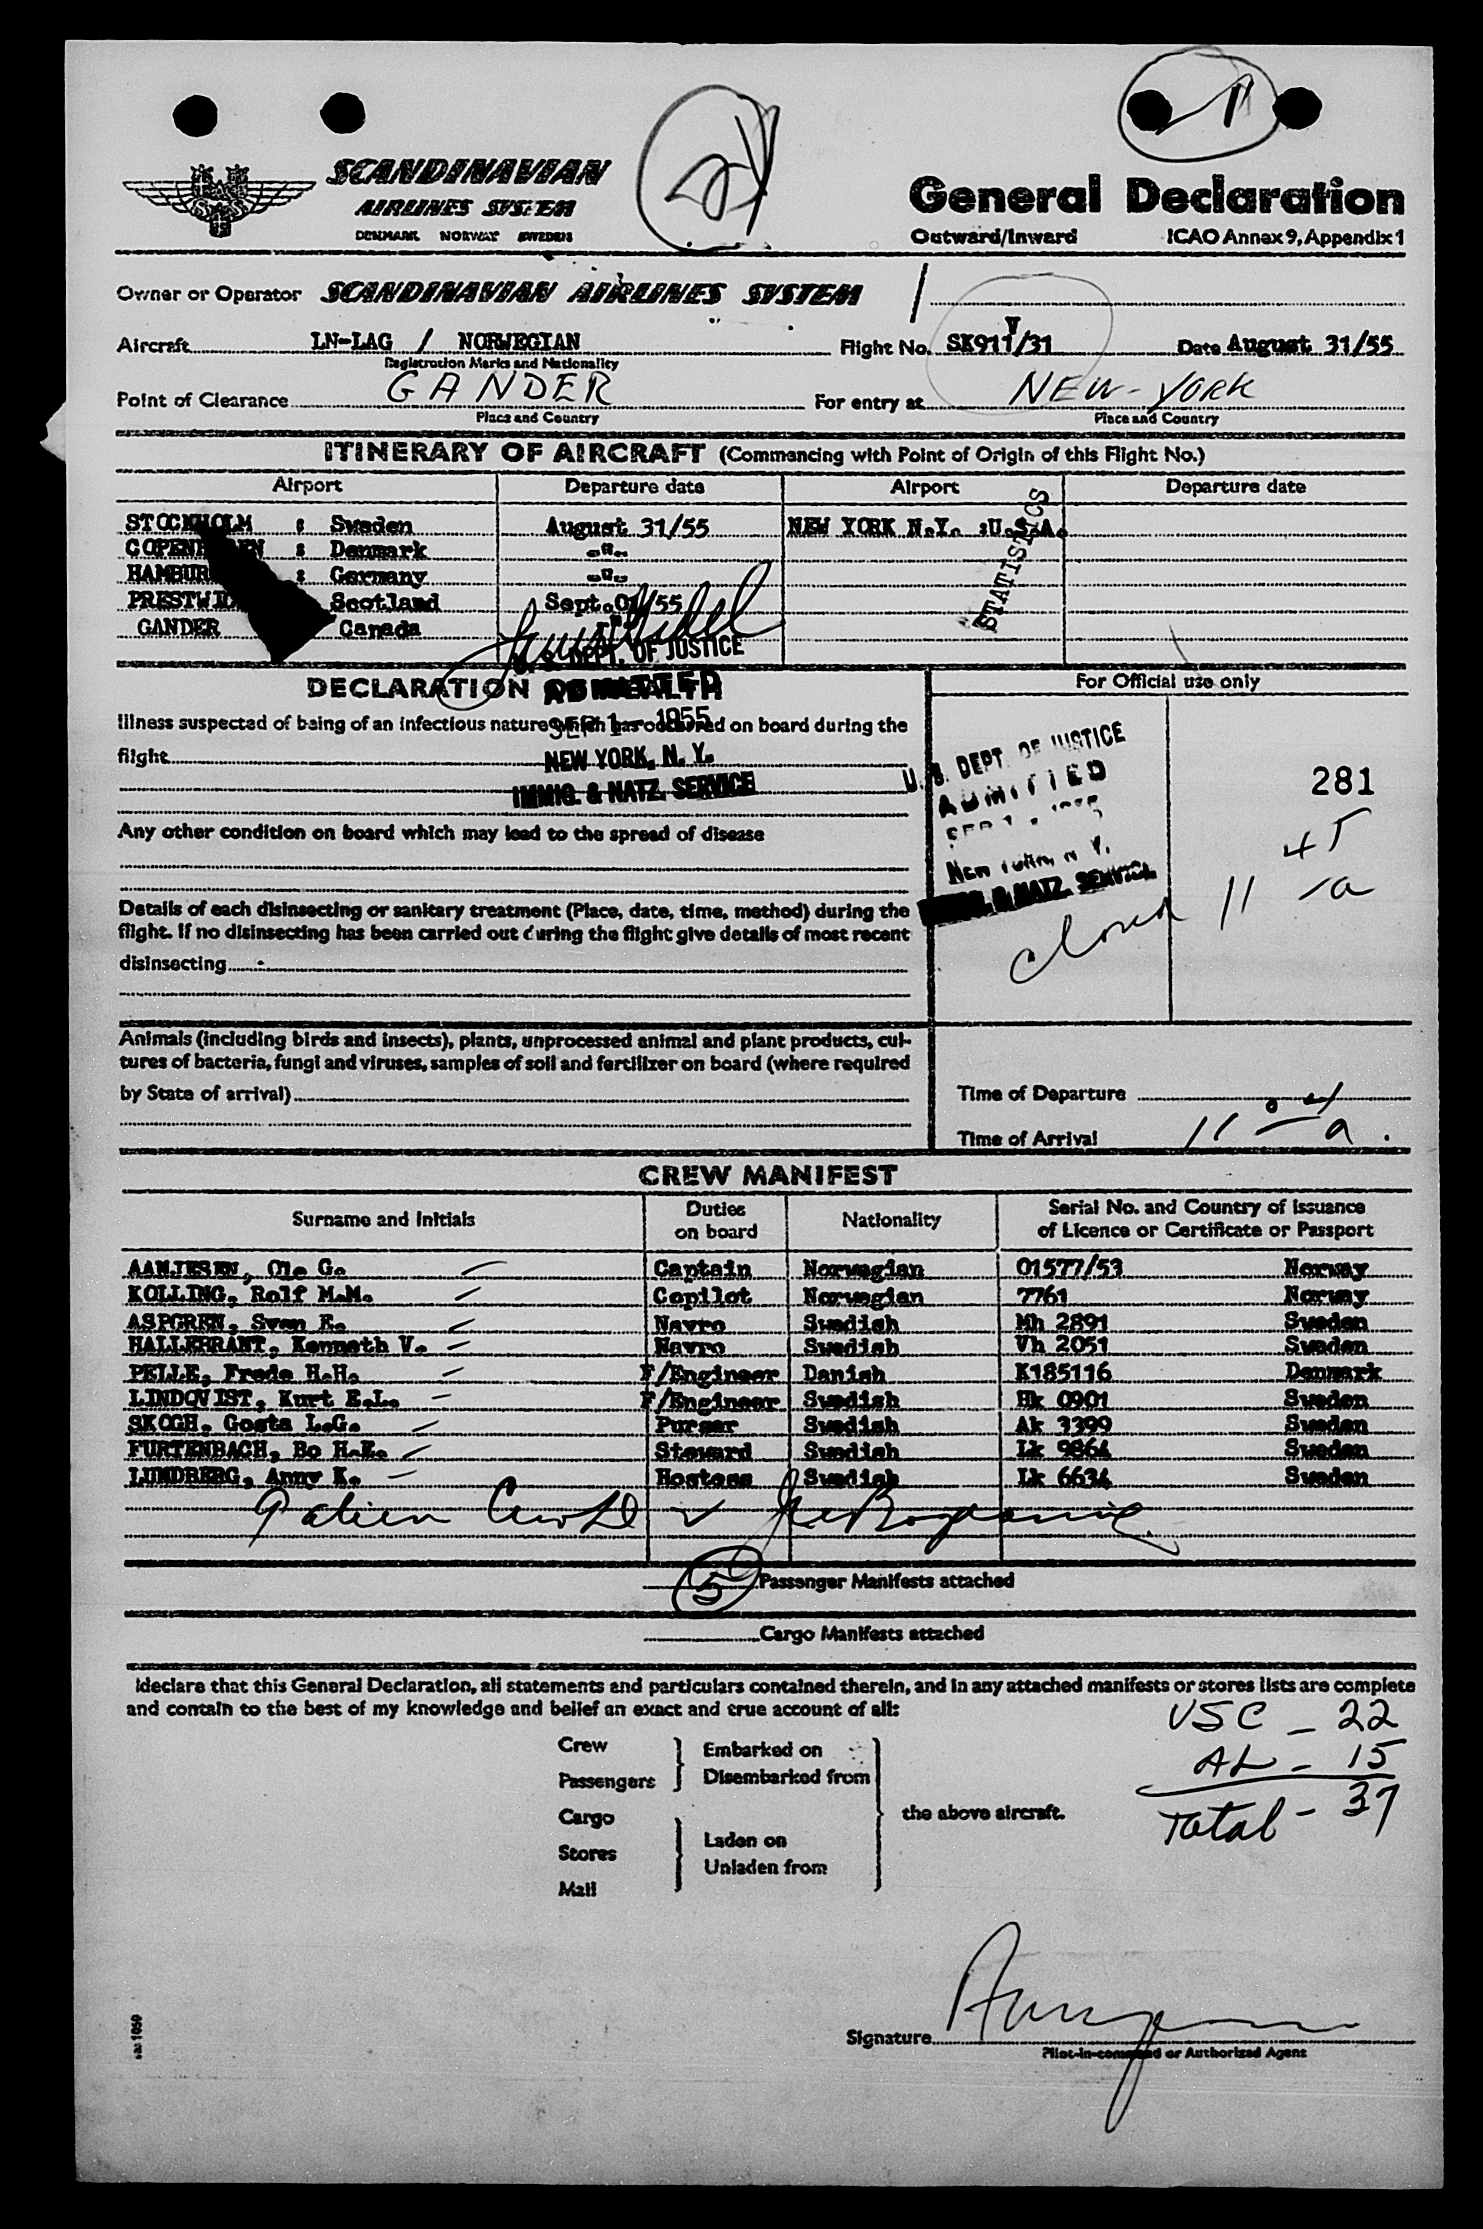 SCANDINAVIAN
AIRLINES SYSTEM
DENMARK NORWAY SWEDEN
General Declaration
Outward/Inward ICAO Annex 9, Appendix 1
Owner or Operator SCANDINAVIAN AIRLINES SYSTEM
Aircraft LN-LAG / NORWEGIAN Flight No. SK911/31 Date August 31/55
Registration Marks and Nationality
Point of Clearance GANDER For entry at NEW-YORK
Place and Country Place and Country
ITINERARY OF AIRCRAFT (Commencing with Point of Origin of this Flight No.)
Airport Departure date Airport Departure date
STOCKHOLM : Sweden August 31/55 NEW YORK N.Y. :U.S.A.
COPENHAGEN : Denmark -"-
HAMBUR : Germany -"-
PRESTWIC Scotland Sept.01/55
GANDER Canada
STATISTICS
DEPT. OF JUSTICE
ADMITTED
SEP 1 - 1955
NEW YORK, N. Y.
IMMIG. & NATZ. SERVICE
DECLARATION OF HEALTH
For Official use only
Illness suspected of being of an infectious nature which has occurred on board during the
flight
Any other condition on board which may lead to the spread of disease
Details of each disinsecting or sanitary treatment (Place, date, time, method) during the
flight. If no disinsecting has been carried out during the flight give details of most recent
disinsecting
U. S. DEPT. OF JUSTICE
ADMITTED
SEP 1 - 1955
New York, N. Y.
IMMIG. & NATZ. SERVICE
281
45
closed 11 - a
Animals (including birds and insects), plants, unprocessed animal and plant products, cul-
tures of bacteria, fungi and viruses, samples of soil and fertilizer on board (where required
by State of arrival)
Time of Departure
Time of Arrival 11 04 a.
CREW MANIFEST
Surname and Initials Duties on board Nationality Serial No. and Country of Issuance of Licence or Certificate or Passport
AANJESEN, Ole G. Captain Norwegian 01577/53 Norway
KOLLING, Rolf M.M. Copilot Norwegian 7761 Norway
ASPGREN, Sven E. Navro Swedish Mh 2891 Sweden
HALLERRANT, Kenneth V. Navro Swedish Vh 2051 Sweden
PELLE, Frede H.H. F/Engineer Danish K185116 Denmark
LINDQVIST, Kurt E.L. F/Engineer Swedish Hk 0901 Sweden
SKOGH, Gosta L.G. Purser Swedish Ak 3399 Sweden
FURTENBACH, Bo H.E. Steward Swedish Lk 9864 Sweden
LUNDBERG, Anny K. Hostess Swedish Lk 6634 Sweden
5 Passenger Manifests attached
Cargo Manifests attached
I declare that this General Declaration, all statements and particulars contained therein, and in any attached manifests or stores lists are complete
and contain to the best of my knowledge and belief an exact and true account of all:
USC - 22
AL - 15
Total - 37
Crew
Passengers
Embarked on
Disembarked from
Cargo
Stores
Mail
Laden on
Unladen from
the above aircraft.
Signature
Pilot-in-command or Authorized Agent